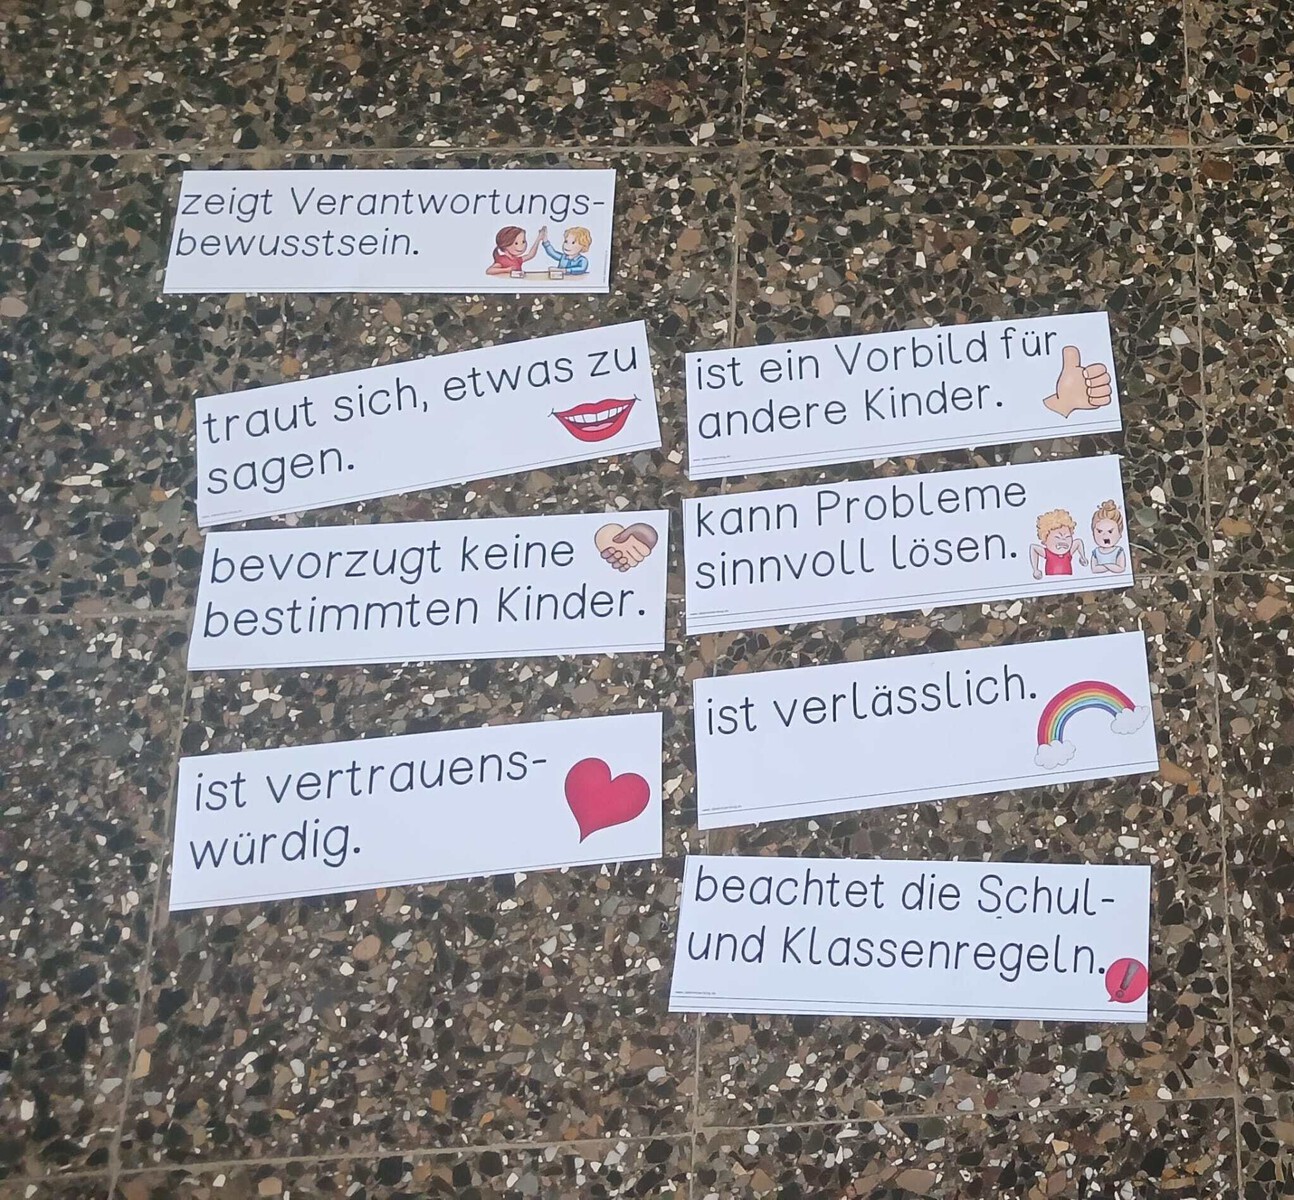 zeigt Verantwortungs-
bewusstsein.
traut sich, etwas zu
sagen.
bevorzugt keine
bestimmten Kinder.
ist vertrauens-
würdig.
ist ein Vorbild für
andere Kinder.
kann Probleme
sinnvoll lösen.
ist verlässlich.
beachtet die Schul-
und Klassenregeln.